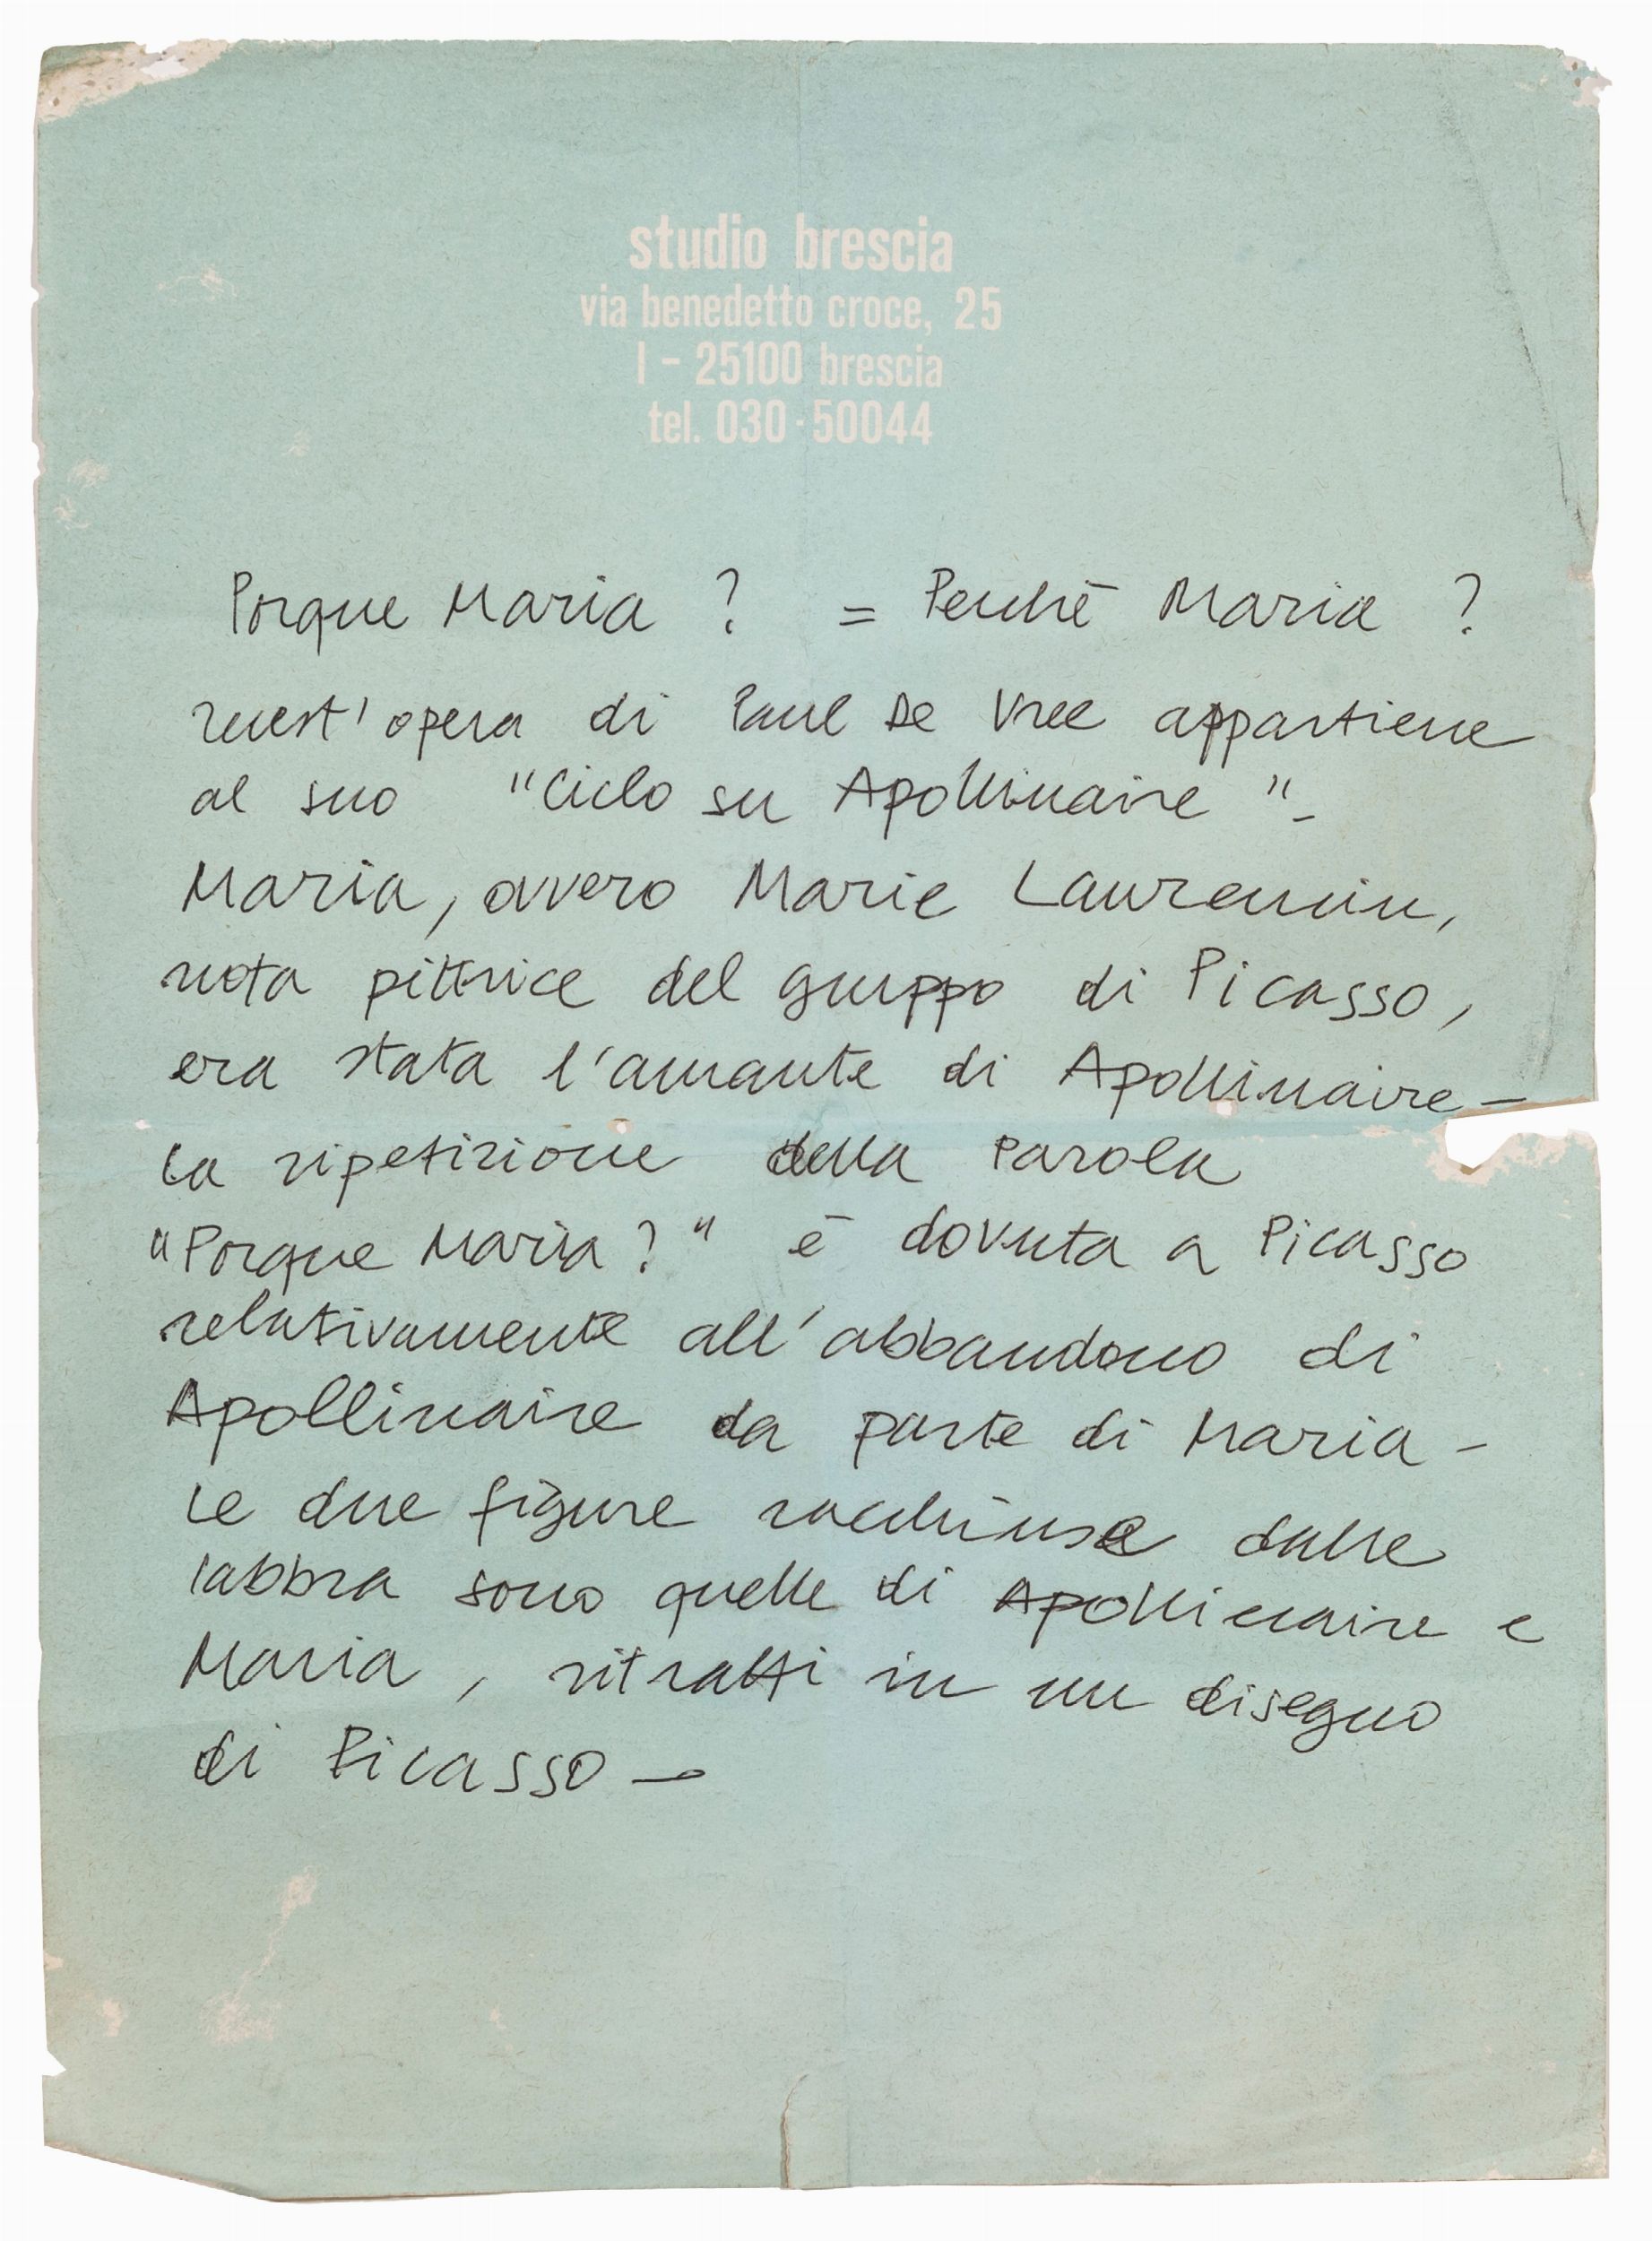 studio brescia
via benedetto croce, 25
I - 25100 brescia
tel. 030 · 50044
Porque Maria ? = Perchè Maria ?
Quest'opera di Paul De Vree appartiene
al suo "Ciclo su Apollinaire" -
Maria, ovvero Marie Laurencin,
nota pittrice del gruppo di Picasso,
era stata l'amante di Apollinaire -
La ripetizione della parola
"Porque Maria?" è dovuta a Picasso
relativamente all'abbandono di
Apollinaire da parte di Maria -
Le due figure racchiuse dalle
labbra sono quelle di Apollinaire e
Maria, ritratti in un disegno
di Picasso -